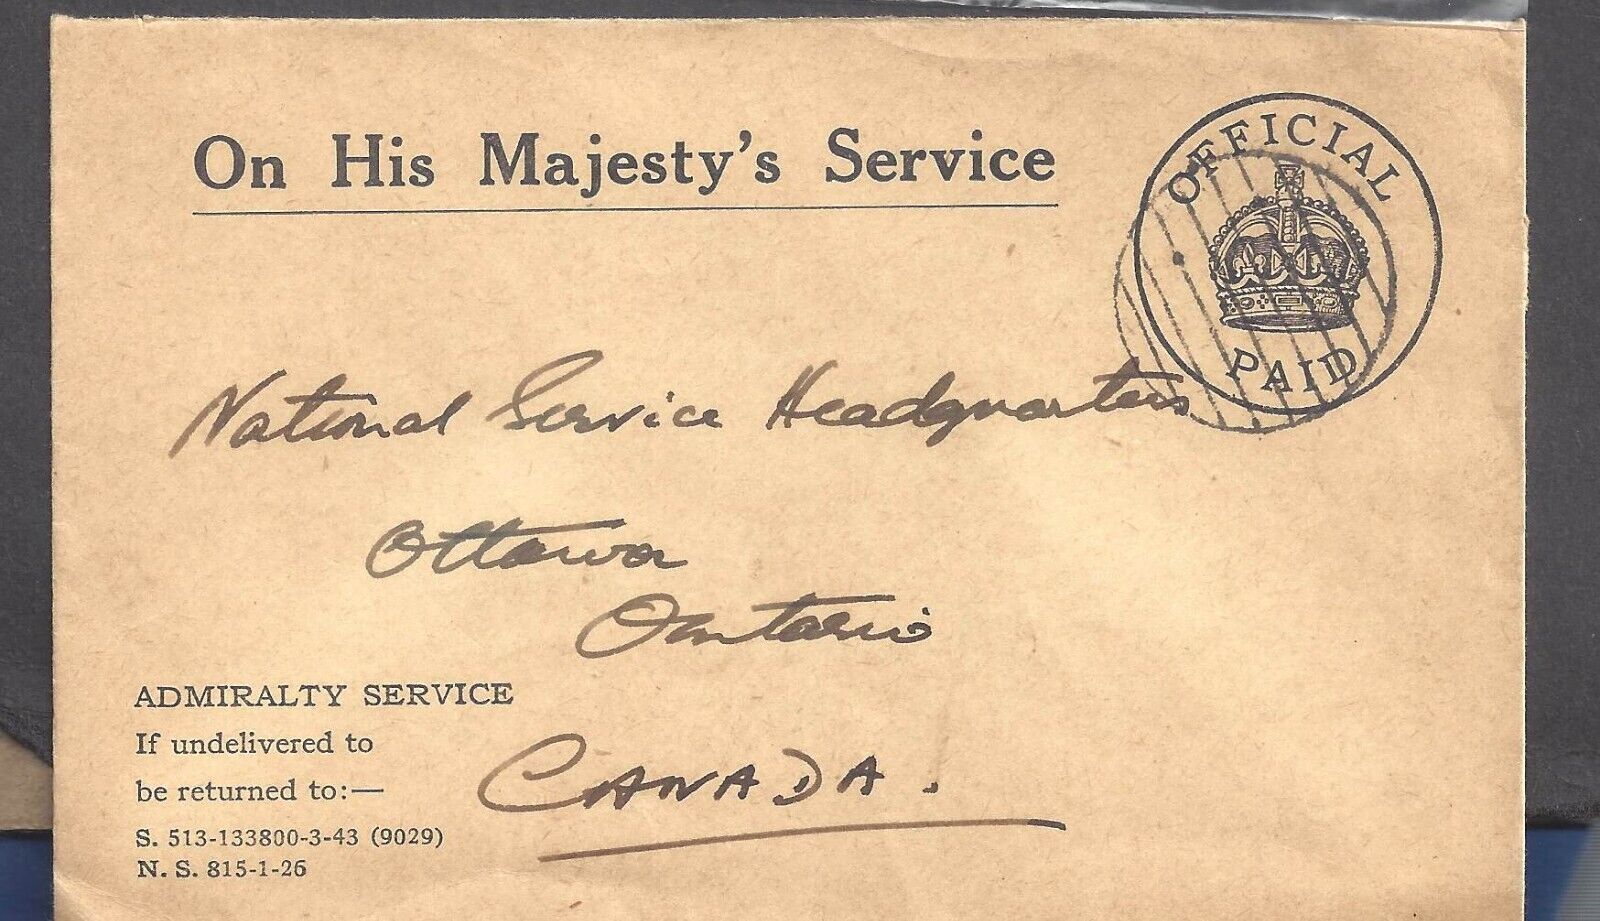 On His Majesty's Service
OFFICIAL
PAID
National Service Headquarters
Ottawa
Ontario
ADMIRALTY SERVICE
If undelivered to
be returned to:—
CANADA.
S. 513-133800-3-43 (9029)
N. S. 815-1-26